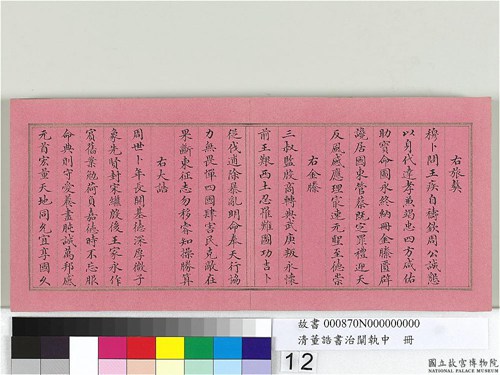 右旅獒
穆卜關王疾自禱欽周公誠懇
以身代達孝竟竭忠四方咸佑
助寶命國永終納冊金縢匱辟
讒居國東管蔡既定罪禮迎天
反風感應理寧速元聖至德崇
右金縢
三叔監殷商轉與武庚叛永懷
前王艱西土忍罹難圖功吉卜
從伐逋除暴亂明命奉天行協
力無畏憚四國肆害民克敵在
果斷東征志勿移睿知操勝算
右大誥
周世卜年長開基德深厚微子
象先賢封宋繼殷後王家永作
賓舊業勉荷負嘉德時不忘服
命典則守愛養盡肫誠萬邦咸
元首宏量天地同允宜享國久
故書 000870N000000000
清董誥書治闡執中 冊
12
國立故宮博物院
NATIONAL PALACE MUSEUM